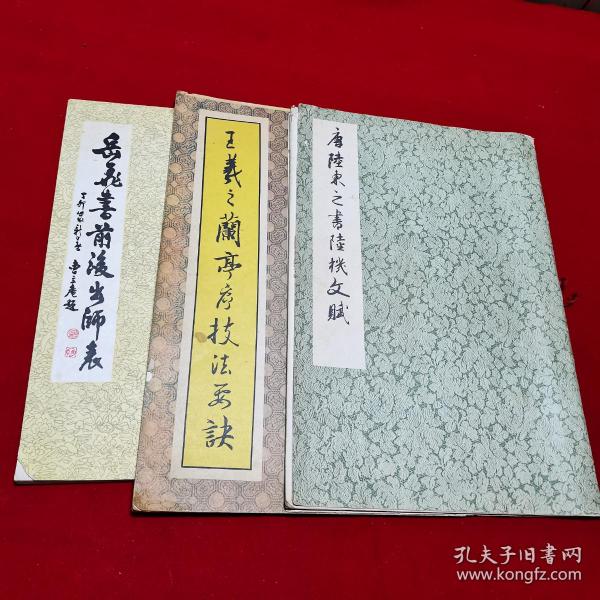 岳飛書前後出師表
王羲之蘭亭序技法要訣
唐陸柬之書陸機文賦
孔夫子旧书网
www.kongfz.com